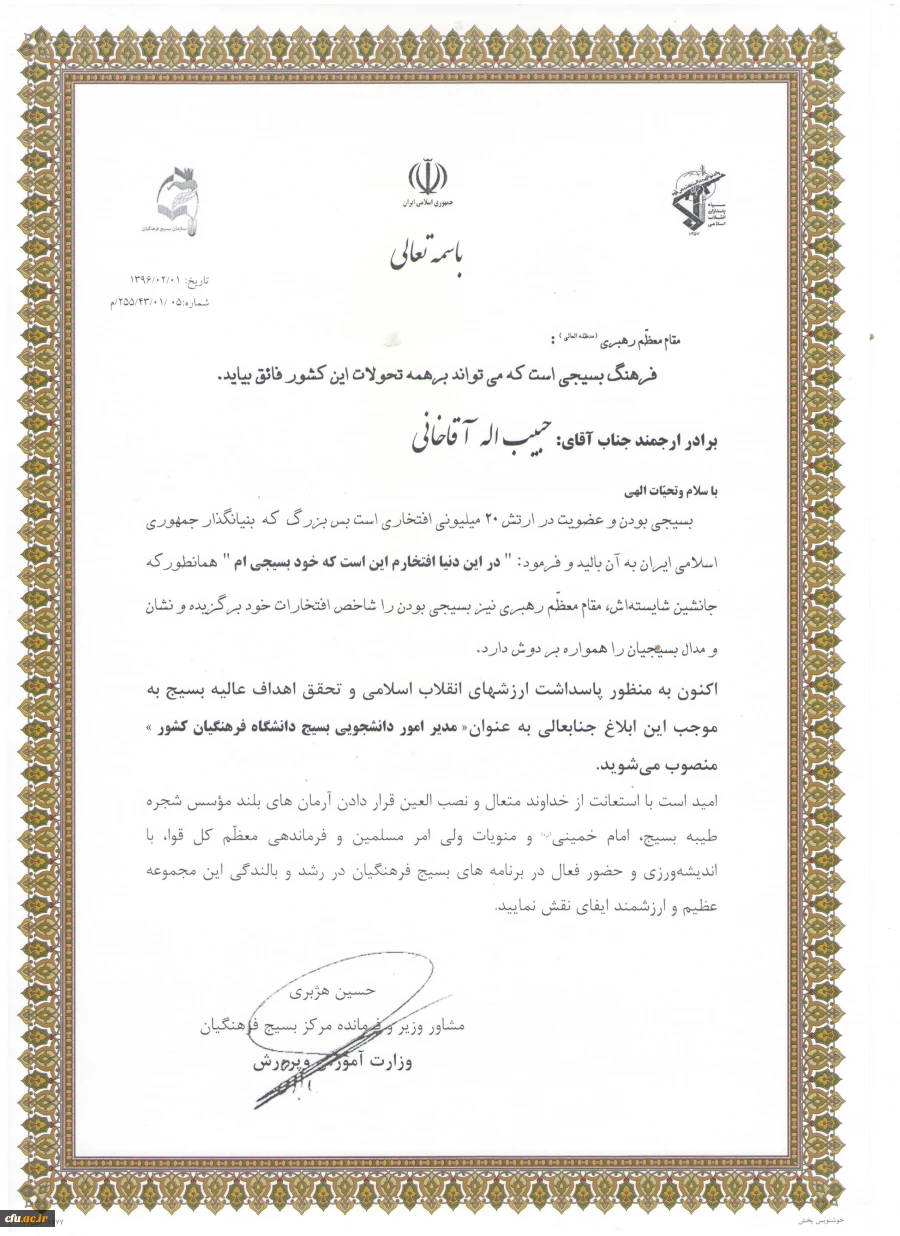 سپاه
پاسداران
انقلاب
اسلامی
جمهوری اسلامی ایران
سازمان بسیج فرهنگیان
باسمه تعالی
تاریخ: ۱۳۹۶/۰۲/۰۱
شماره:۰۵ /۲۵۵/۴۳/۰۱/م
مقام معظّم رهبری (مدظله العالی) :
فرهنگ بسیجی است که می تواند بر همه تحولات این کشور فائق بیاید.
برادر ارجمند جناب آقای: حبیب اله آقاخانی
با سلام وتحیّات الهی
بسیجی بودن و عضویت در ارتش ۲۰ میلیونی افتخاری است بس بزرگ که بنیانگذار جمهوری
اسلامی ایران به آن بالید و فرمود: " در این دنیا افتخارم این است که خود بسیجی ام " همانطورکه
جانشین شایسته‌اش، مقام معظّم رهبری نیز بسیجی بودن را شاخص افتخارات خود برگزیده و نشان
و مدال بسیجیان را همواره بر دوش دارد.
اکنون به منظور پاسداشت ارزشهای انقلاب اسلامی و تحقق اهداف عالیه بسیج به
موجب این ابلاغ جنابعالی به عنوان« مدیر امور دانشجویی بسیج دانشگاه فرهنگیان کشور »
منصوب می‌شوید.
امید است با استعانت از خداوند متعال و نصب العین قرار دادن آرمان های بلند مؤسس شجره
طیبه بسیج، امام خمینی و منویات ولی امر مسلمین و فرماندهی معظّم کل قوا، با
اندیشه‌ورزی و حضور فعال در برنامه های بسیج فرهنگیان در رشد و بالندگی این مجموعه
عظیم و ارزشمند ایفای نقش نمایید.
حسین هژبری
مشاور وزیر و فرمانده مرکز بسیج فرهنگیان
وزارت آموزش وپرورش
cfu.ac.ir
خوشنویس پخش